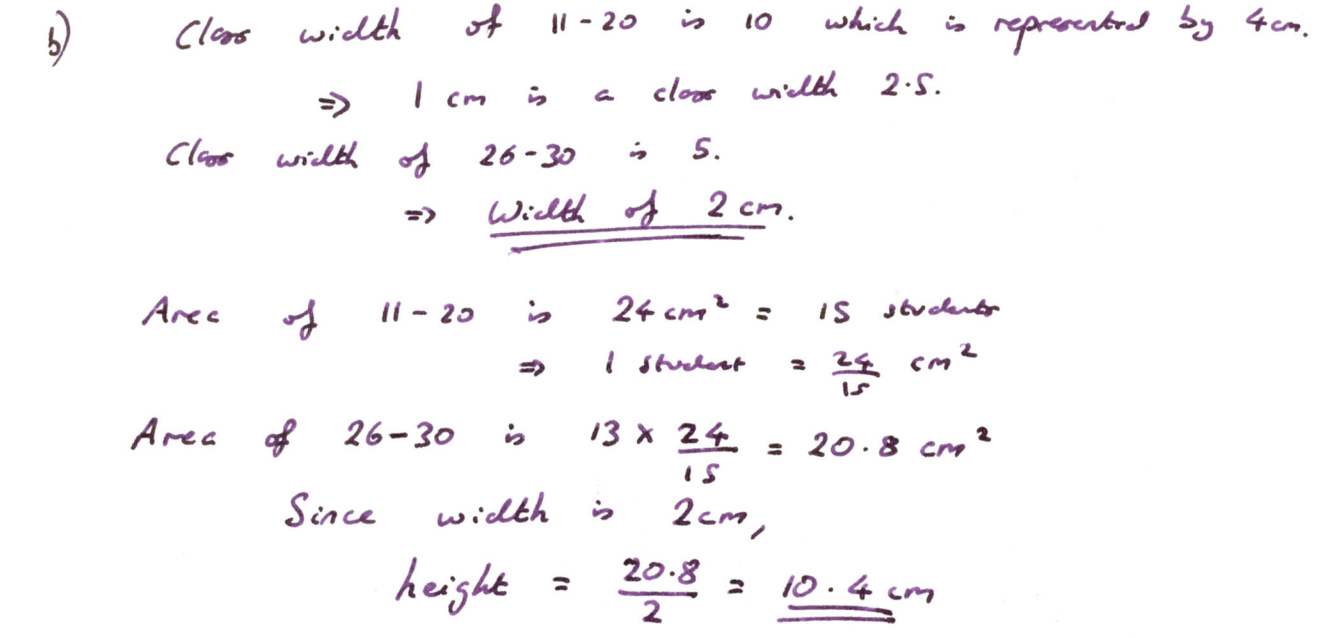 b) Class width of 11-20 is 10 which is represented by 4cm.
⇒ 1 cm is a class width 2.5.
Class width of 26-30 is 5.
⇒ Width of 2 cm.
Area of 11-20 is 24cm² = 15 students
⇒ 1 student = 24/15 cm²
Area of 26-30 is 13 × 24/15 = 20.8 cm²
Since width is 2cm,
height = 20.8/2 = 10.4 cm